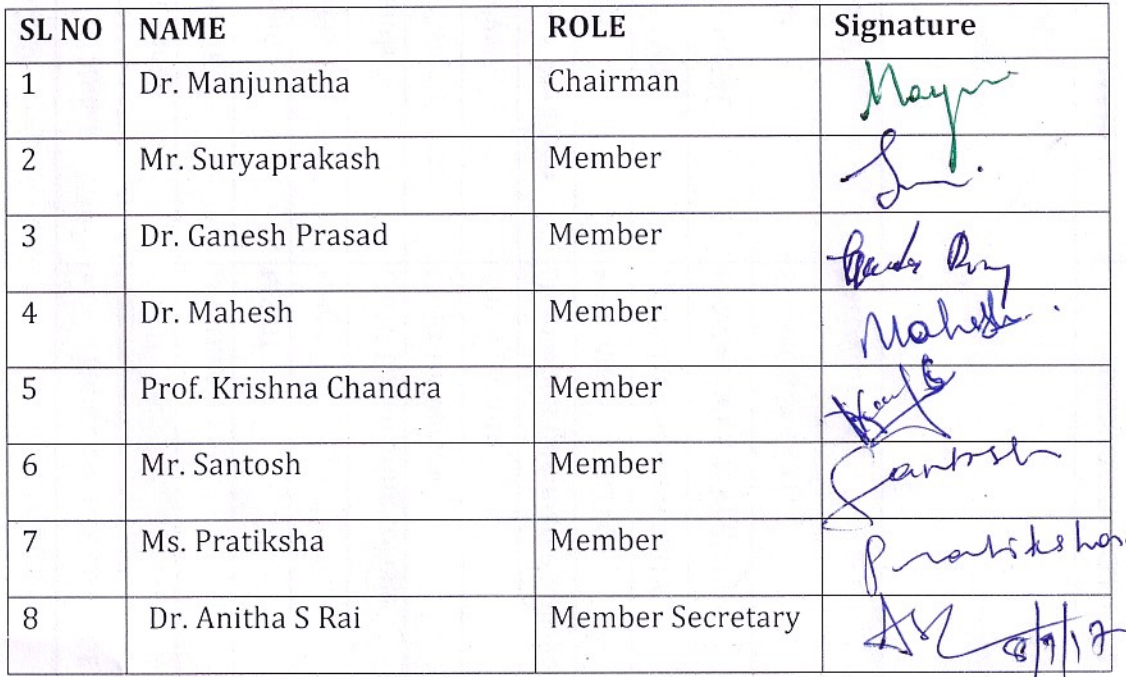 SL NO NAME ROLE Signature
1 Dr. Manjunatha Chairman
2 Mr. Suryaprakash Member
3 Dr. Ganesh Prasad Member
4 Dr. Mahesh Member Mahesh
5 Prof. Krishna Chandra Member
6 Mr. Santosh Member Santosh
7 Ms. Pratiksha Member Pratiksha
8 Dr. Anitha S Rai Member Secretary 8/9/17